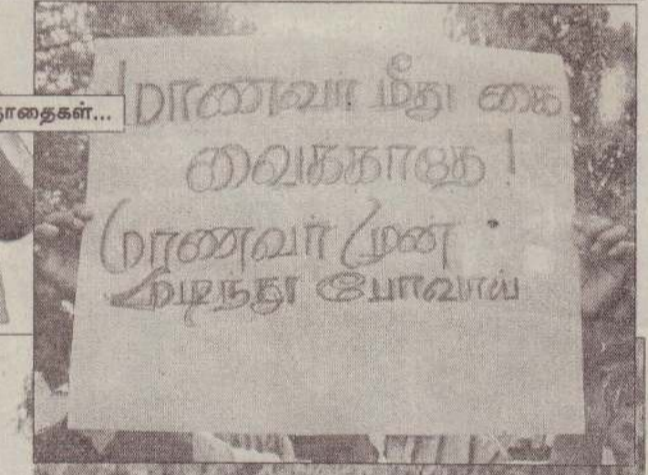 தாதைகள்...
மாணவர் மீது கை
வைக்காதே!
மாணவர் முன்
மடிந்து போவாய்